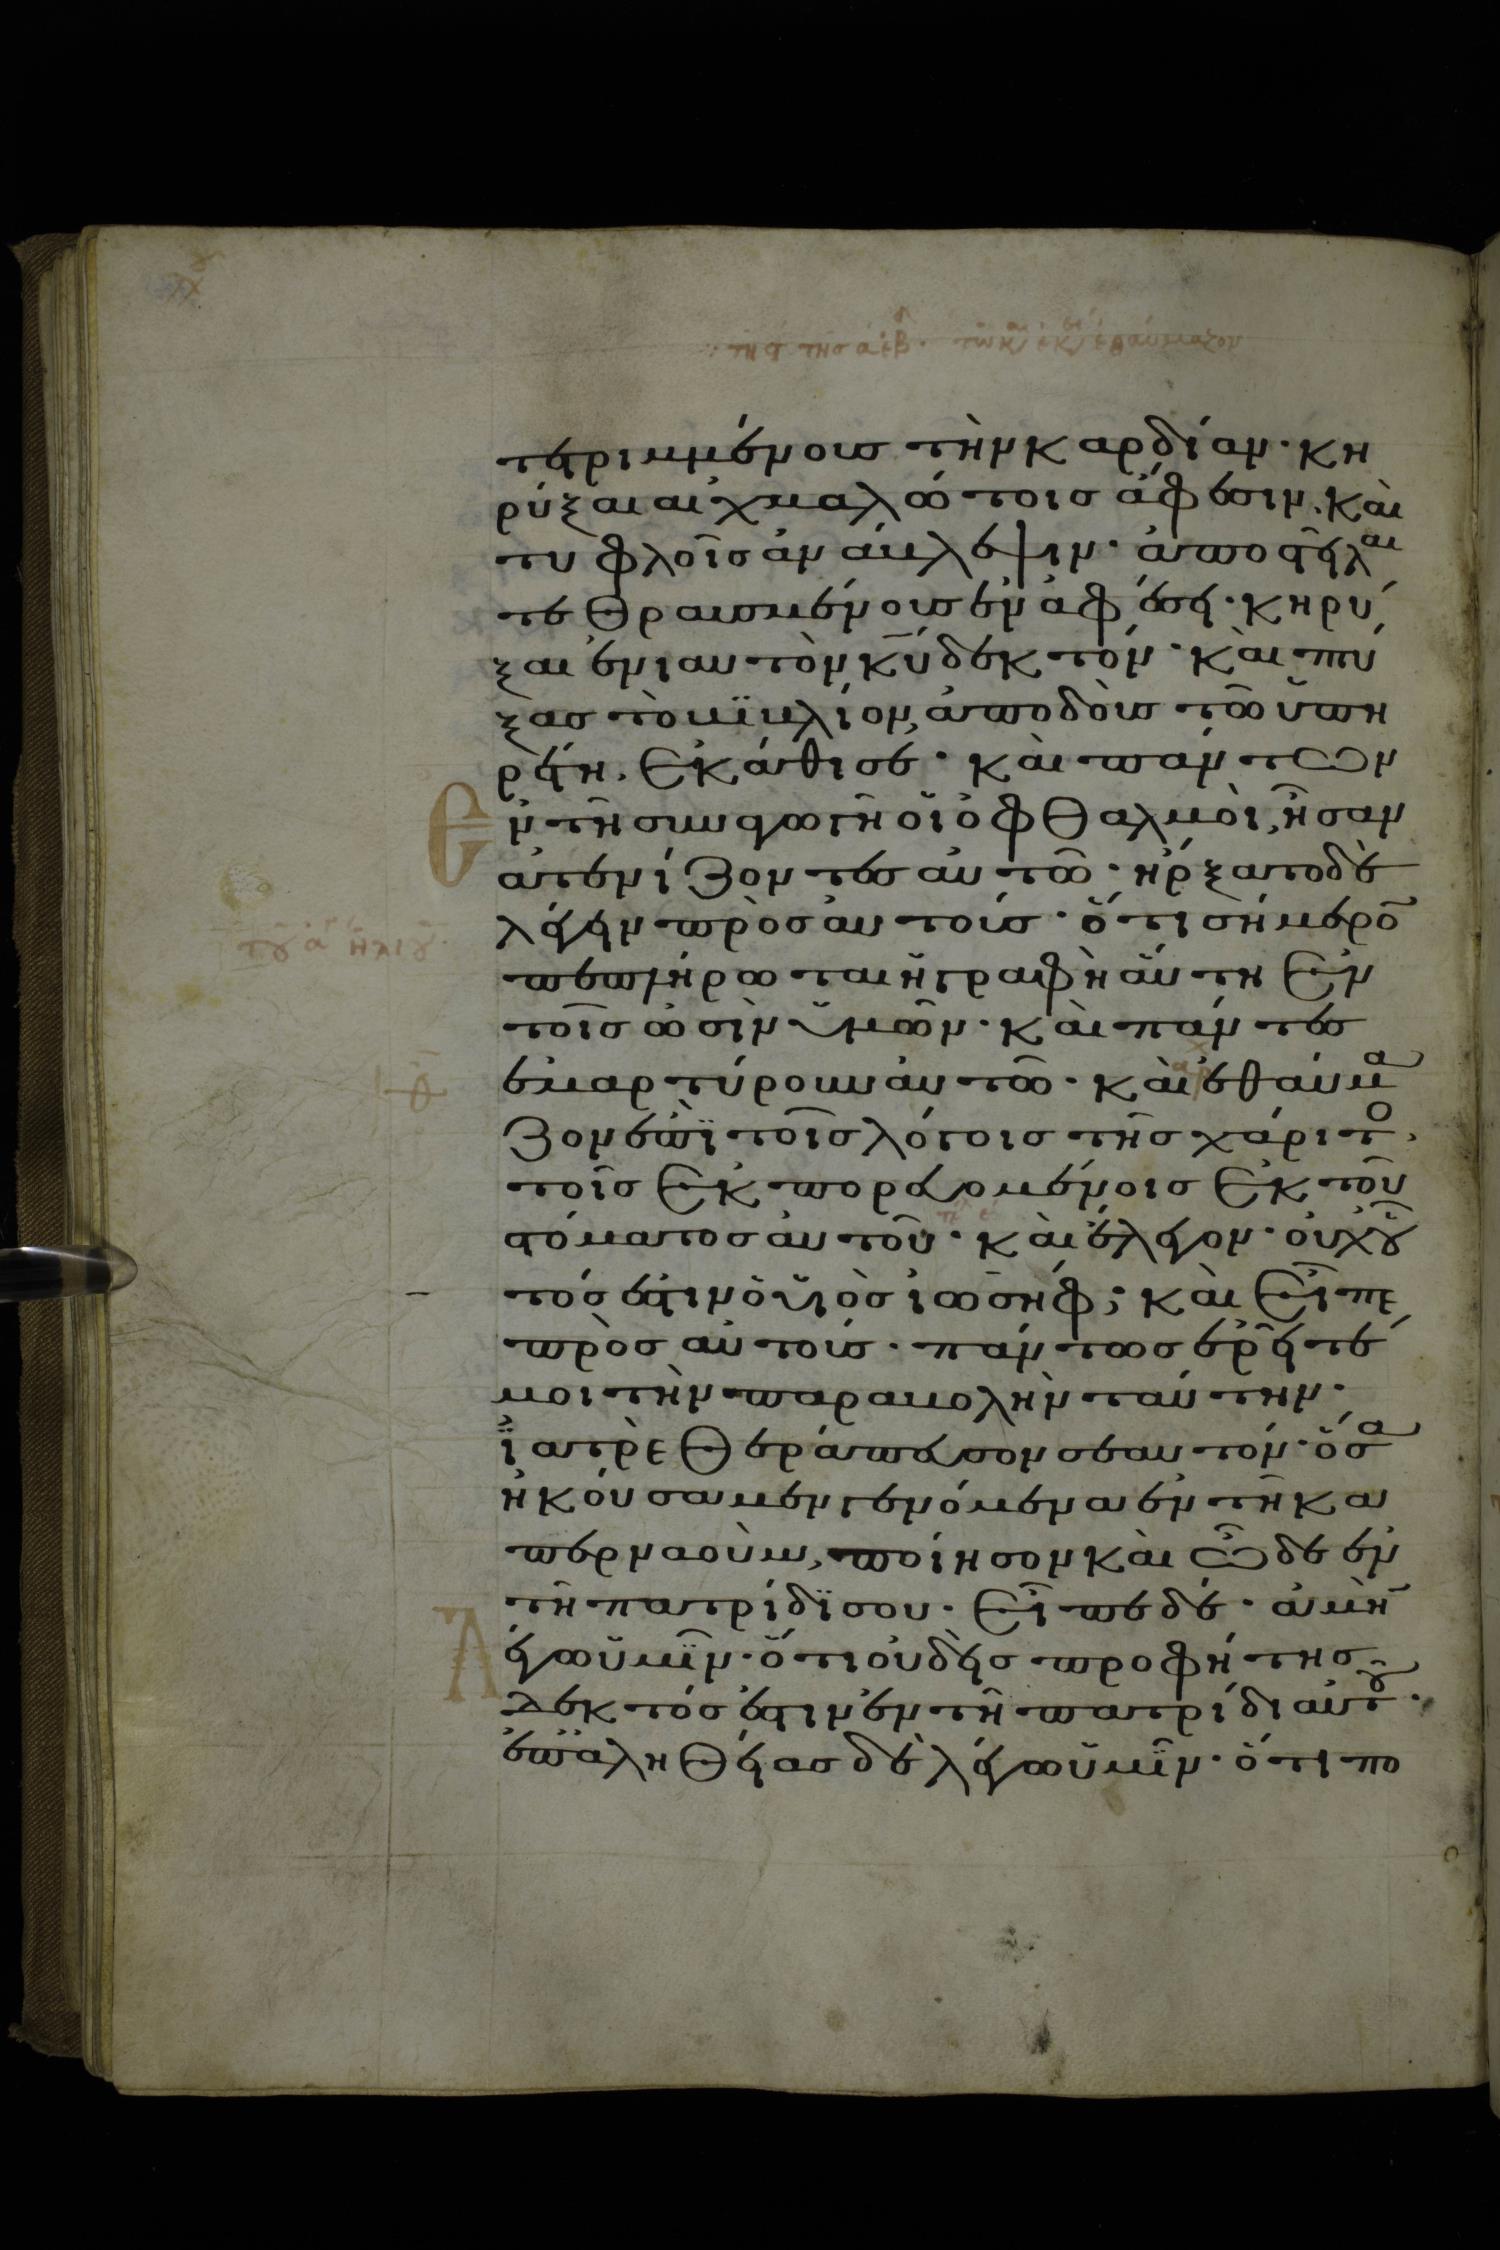 τετριμμένους τὴν καρδίαν· κη
ρύξαι αἰχμαλώτοις ἄφεσιν. καὶ
τυφλοῖς ἀνάβλεψιν· ἀποστεῖλαι
τεθραυσμένους ἐν ἀφέσει· κηρύ
ξαι ἐνιαυτὸν κ̅υ̅ δεκτόν· καὶ πτύ
ξας τὸ βϊβλίον, ἀποδοὺς τῶ ὑπη
ρέτη. ἐκάθισε· καὶ πάντων
ἐν τῆ συναγωγῆ οἱ ὀφθαλμοὶ, ἦσαν
ἀτενίζοντες αὐτῶ· ἤρξατο δὲ
λέγειν πρὸς αὐτούς· ὅτι σήμερο̅
πεπλήρωται ἡ γραφὴ αὕτη ἐν
τοῖς ὠσὶν ὑμῶν· καὶ πάντες
ἐμαρτύρουν αὐτῶ· καὶ ἐθαύμα
ζον ἐπὶ τοῖς λόγοις τῆς χάριτο,
τοῖς ἐκπορευομένοις ἐκ τοῦ
στόματος αὐτοῦ· καὶ ἔλεγον· οὐχ οὗ
τός ἐστιν ὁ υἱὸς ἰωσήφ; καὶ εἶπε
πρὸς αὐτούς· πάντως ἐρεῖτέ
μοι τὴν παραβολὴν ταύτην·
ἰατρὲ θεράπευσον σεαυτόν· ὅσα
ἠκούσαμεν γενόμενα ἐν τῆ κα
περναοὺμ, ποίησον καὶ ὧδε ἐν
τῆ πατρίδϊ σου· εἶπε δέ· ἀμὴ̅
λέγω ὑμῖν· ὅτι οὐδεὶς προφήτης
δεκτός ἐστιν ἐν τῆ πατρίδι αὐτοῦ·
ἐπ ἀληθείας δὲ λέγω ὑμῖν· ὅτι πο